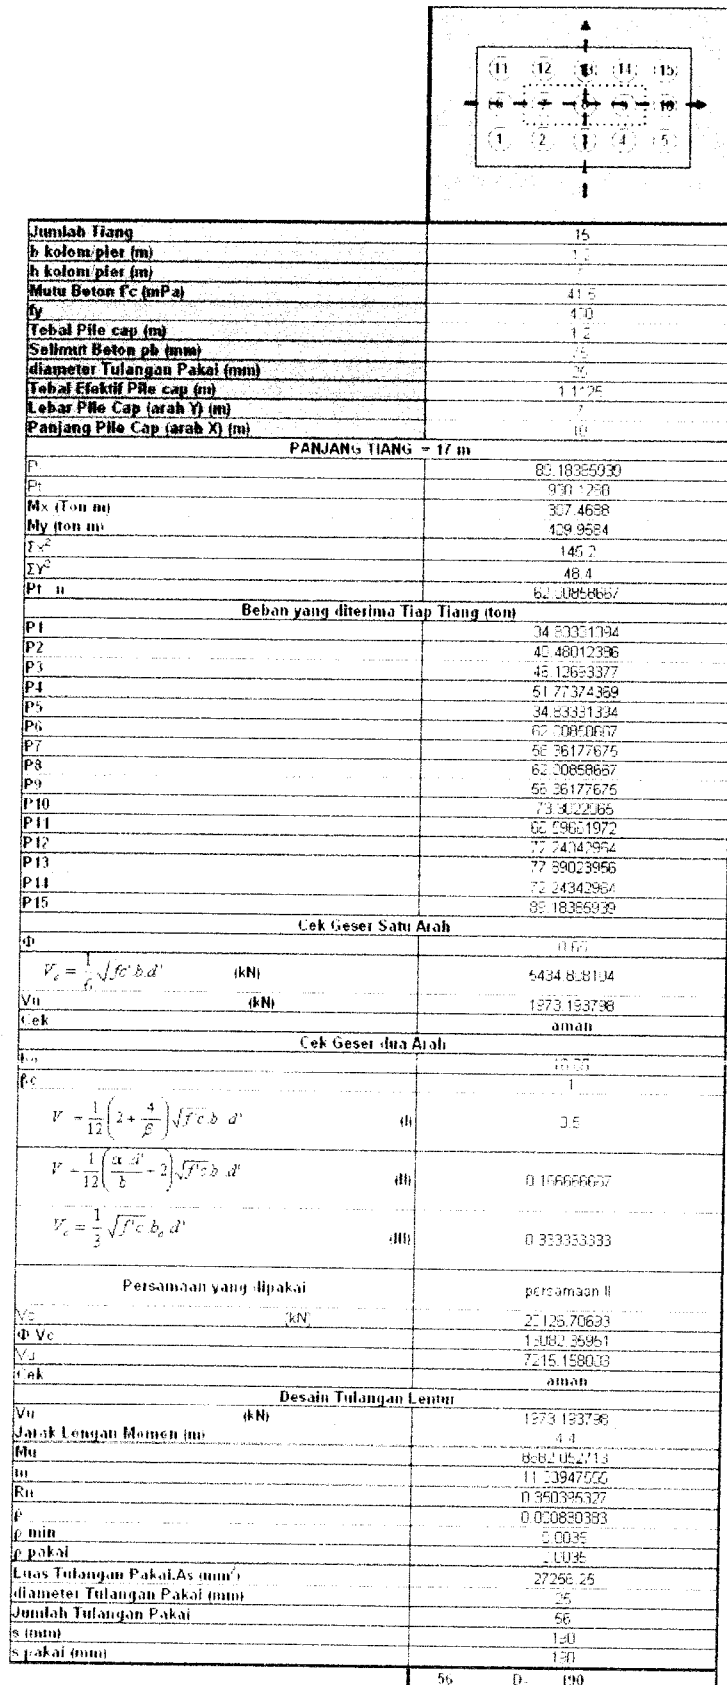 11 12 13 14 15
7
1 2 4 5
Jumlah Tiang 15
b kolom/pier (m)
h kolom/pier (m)
Mutu Beton f'c (mPa) 41.5
fy 400
Tebal Pile cap (m) 1.2
Selimut Beton pb (mm) 75
diameter Tulangan Pakai (mm) 25
Tebal Efektif Pile cap (m) 1.1125
Lebar Pile Cap (arah Y) (m) 7
Panjang Pile Cap (arah X) (m) 10
PANJANG TIANG = 17 m
P 89.18385939
Pt 930.1288
Mx (Ton m) 307.4688
My (ton m) 409.9584
Σx² 145.2
ΣY² 48.4
Pt n 62.00858667
Beban yang diterima Tiap Tiang (ton)
P1 34.83331394
P2 40.48012386
P3 46.12693377
P4 51.77374369
P5 34.83331394
P6 62.00858667
P7 56.36177675
P8 62.00858667
P9 56.36177675
P10 73.3022065
P11 66.59661972
P12 72.24342964
P13 77.89023956
P14 72.24342964
P15 89.18385939
Cek Geser Satu Arah
Φ
V_c = 1/6 √fc' b.d' (kN) 5434.808104
Vu (kN) 1973.193798
Cek aman
Cek Geser dua Arah
βc 1
V = 1/12 (2 + 4/β) √f'c b d' (I) 0.5
V = 1/12 (α d'/b + 2) √f'c b d' (II) 0.166666667
V_c = 1/3 √f'c b_o d' (III) 0.333333333
Persamaan yang dipakai persamaan II
Vc (kN) 20126.70693
Φ Vc
Vu 7215.158003
Cek aman
Desain Tulangan Lentur
Vu (kN) 1973.193798
Jarak Lengan Momen (m) 4.4
Mu 8682.052713
m
Rn 0.350395327
ρ 0.000880383
ρ min 0.0035
ρ pakai 0.0035
Luas Tulangan Pakai.As (mm²) 27256.25
diameter Tulangan Pakai (mm) 25
Jumlah Tulangan Pakai 56
s (mm) 190
s pakai (mm) 190
56 D- 190